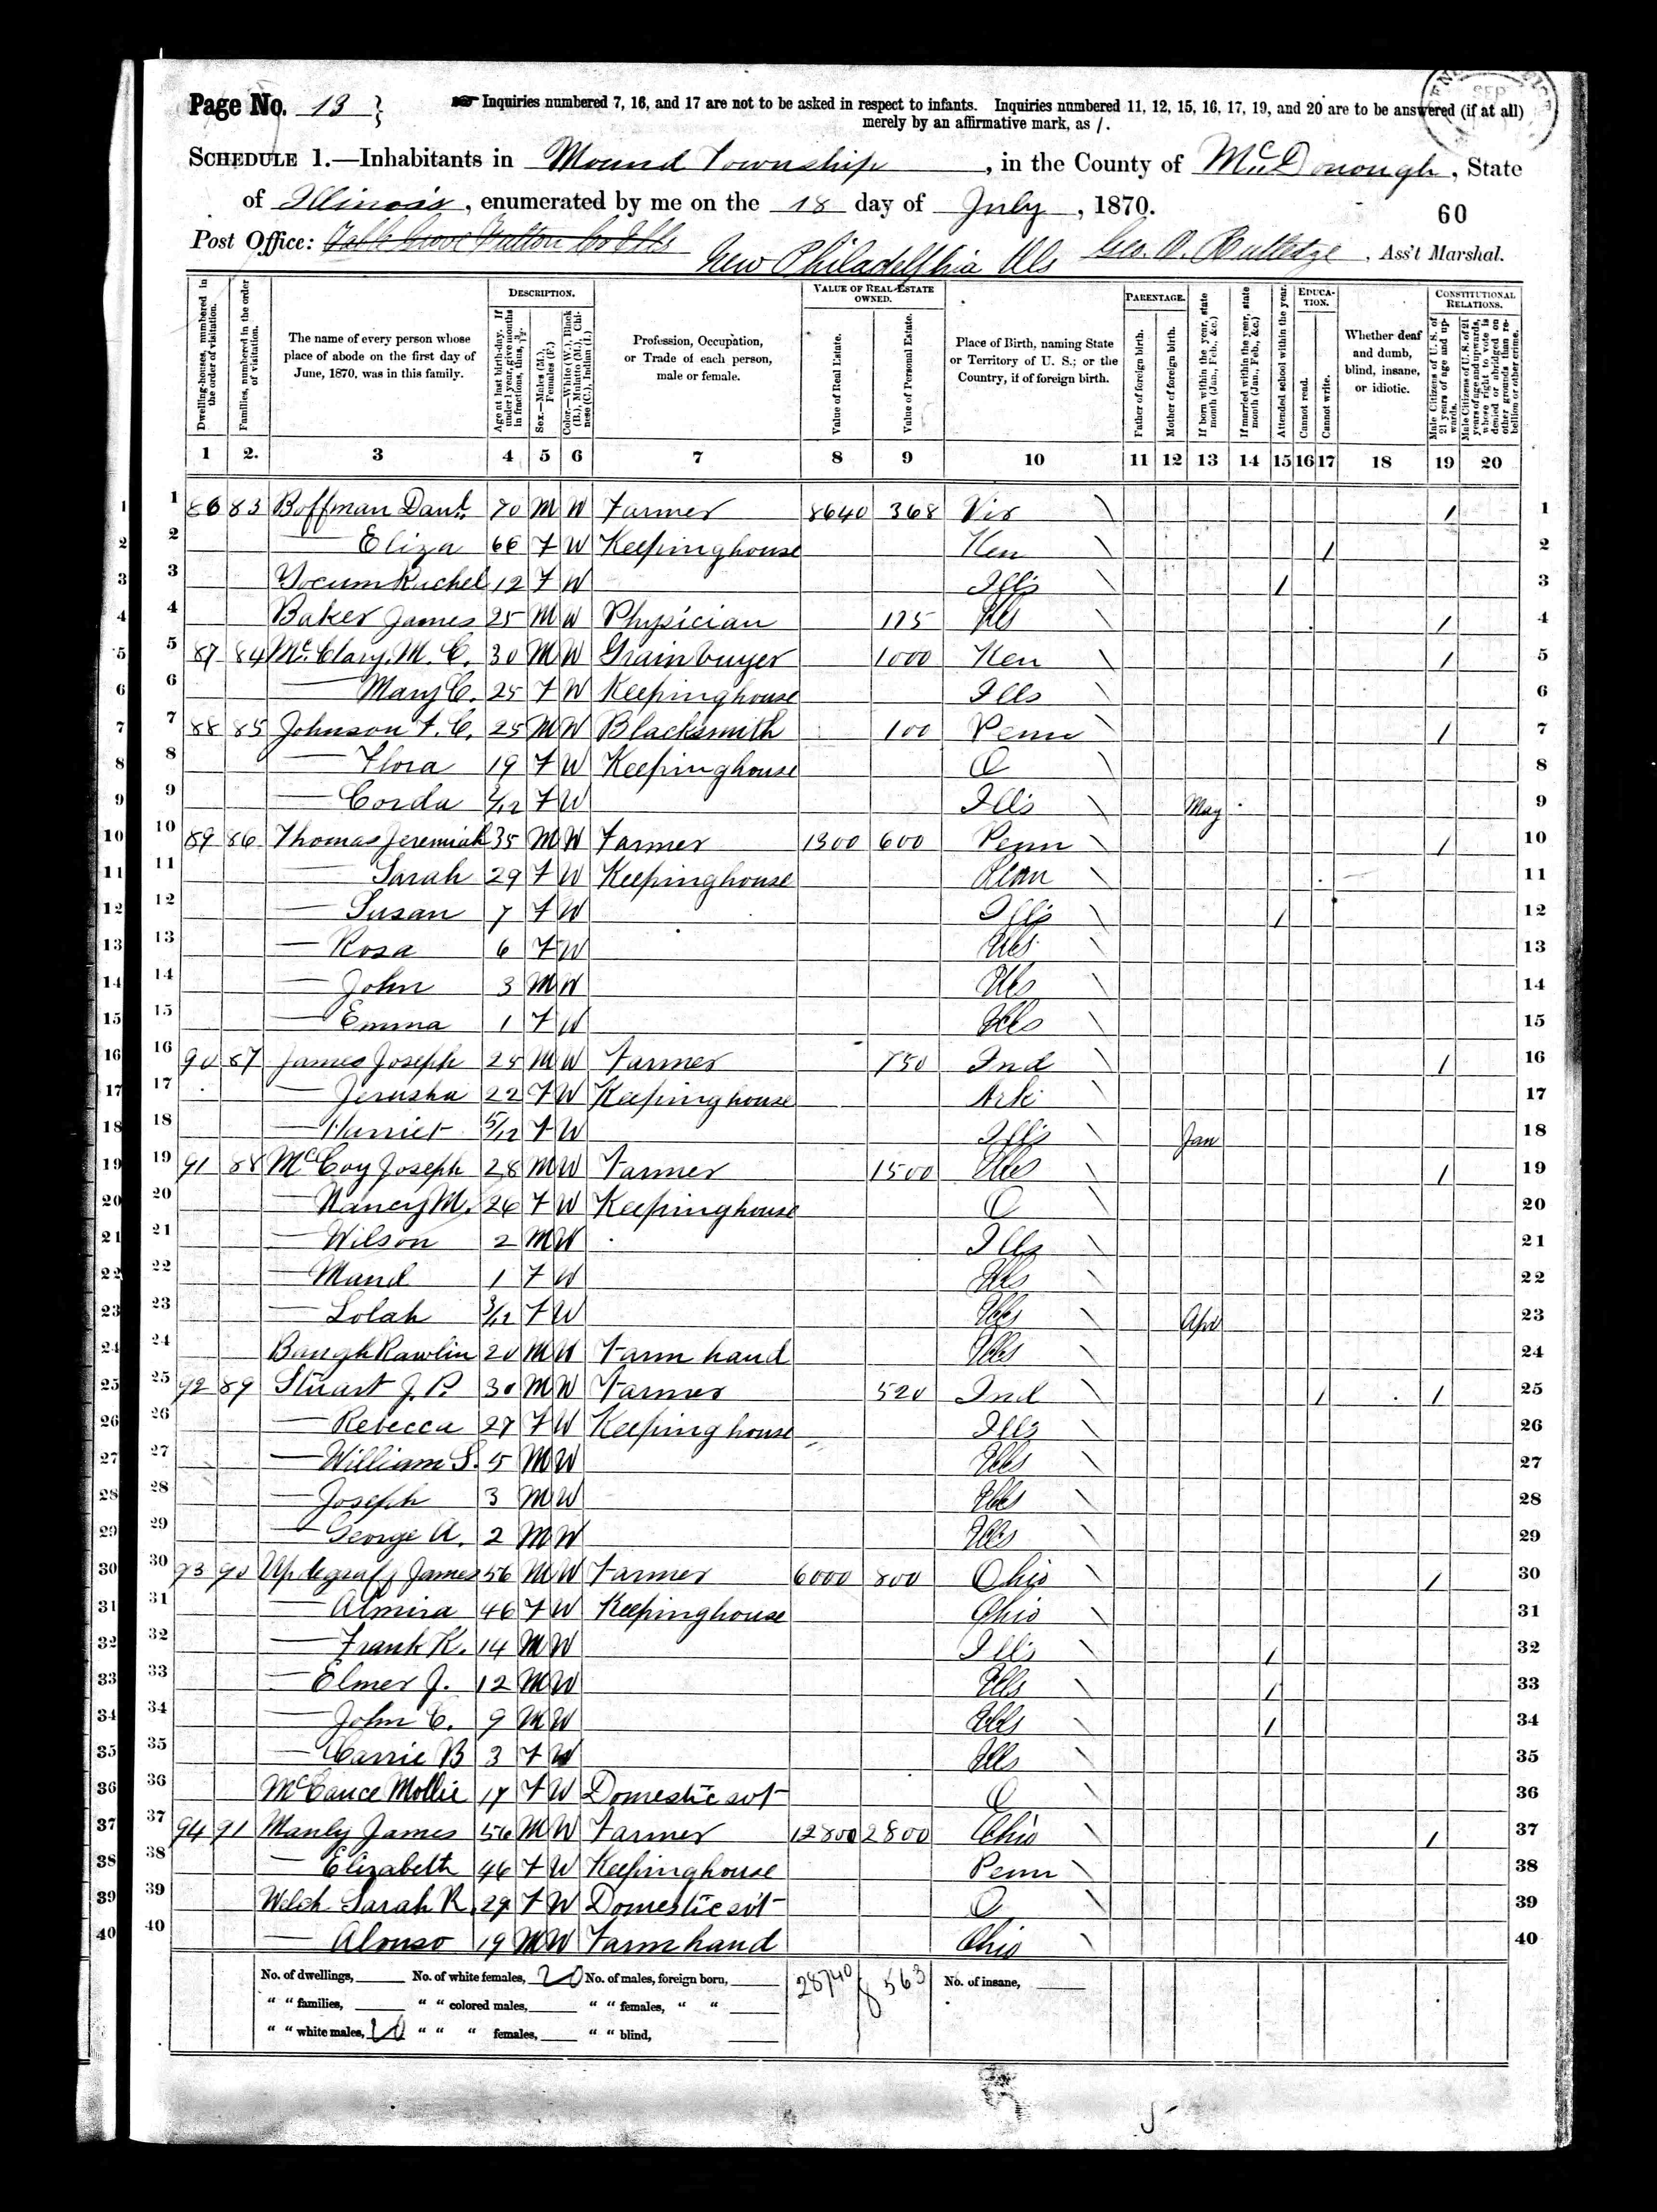 Page No. 13
☞ Inquiries numbered 7, 16, and 17 are not to be asked in respect to infants. Inquiries numbered 11, 12, 15, 16, 17, 19, and 20 are to be answered (if at all)
merely by an affirmative mark, as /.
SCHEDULE 1.—Inhabitants in Mound Township, in the County of McDonough, State
of Illinois, enumerated by me on the 18 day of July, 1870.
60
Post Office: Table Grove Fulton Co Ills New Philadelphia Ills Geo. A. Rutledge, Ass't Marshal.
Dwelling-houses, numbered in the order of visitation.
Families, numbered in the order of visitation.
The name of every person whose place of abode on the first day of June, 1870, was in this family.
DESCRIPTION.
Age at last birth-day. If under 1 year, give months in fractions, thus, 3/12.
Sex.—Males (M.), Females (F.)
Color.—White (W.), Black (B.), Mulatto (M.), Chinese (C.), Indian (I.)
Profession, Occupation, or Trade of each person, male or female.
VALUE OF REAL ESTATE OWNED.
Value of Real Estate.
Value of Personal Estate.
Place of Birth, naming State or Territory of U. S.; or the Country, if of foreign birth.
PARENTAGE.
Father of foreign birth.
Mother of foreign birth.
If born within the year, state month (Jan., Feb., &c.)
If married within the year, state month (Jan., Feb., &c.)
Attended school within the year.
EDUCATION.
Cannot read.
Cannot write.
Whether deaf and dumb, blind, insane, or idiotic.
CONSTITUTIONAL RELATIONS.
Male Citizens of U. S. of 21 years of age and upwards.
Male Citizens of U. S. of 21 years of age and upwards, whose right to vote is denied or abridged on other grounds than rebellion or other crime.
1 2. 3 4 5 6 7 8 9 10 11 12 13 14 15 16 17 18 19 20
1 86 83 Boffman Danl. 70 M W Farmer 8640 368 Vir / 1
2 — Eliza 66 F W Keeping house Ken / 2
3 Yocum Rachel 12 F W Ills / 3
4 Baker James 25 M W Physician 175 Ills / 4
5 87 84 McClary M. C. 30 M W Grain buyer 1000 Ken / 5
6 — Mary C. 25 F W Keeping house Ills 6
7 88 85 Johnson F. C. 25 M W Blacksmith 100 Penn / 7
8 — Flora 19 F W Keeping house O 8
9 — Corda 2/12 F W Ills May 9
10 89 86 Thomas Jeremiah 35 M W Farmer 1300 600 Penn / 10
11 — Sarah 29 F W Keeping house Penn 11
12 — Susan 7 F W Ills / 12
13 — Rosa 6 F W Ills 13
14 — John 3 M W Ills 14
15 — Emma 1 F W Ills 15
16 90 87 James Joseph 25 M W Farmer 750 Ind / 16
17 — Jerusha 22 F W Keeping house Ark 17
18 — Harriet 5/12 F W Ills Jan 18
19 91 88 McCoy Joseph 28 M W Farmer 1500 Ills / 19
20 — Nancy M. 26 F W Keeping house O 20
21 — Wilson 2 M W Ills 21
22 — Maud 1 F W Ills 22
23 — Lolah 3/12 F W Ills Apr 23
24 Baugh Rawlin 20 M W Farm hand Ills 24
25 92 89 Stuart J. P. 30 M W Farmer 520 Ind / / 25
26 — Rebecca 27 F W Keeping house Ills 26
27 — William S. 5 M W Ills 27
28 — Joseph 3 M W Ills 28
29 — George A. 2 M W Ills 29
30 93 90 Updegraff James 56 M W Farmer 6000 800 Ohio / 30
31 — Almira 46 F W Keeping house Ohio 31
32 — Frank K. 14 M W Ills / 32
33 — Elmer J. 12 M W Ills / 33
34 — John C. 9 M W Ills / 34
35 — Carrie B 3 F W Ills 35
36 McCance Mollie 17 F W Domestic svt O 36
37 94 91 Manly James 56 M W Farmer 12800 2800 Ohio / 37
38 — Elizabeth 46 F W Keeping house Penn 38
39 Welch Sarah R. 29 F W Domestic svt O 39
40 — Alonso 19 M W Farm hand Ohio 40
No. of dwellings, No. of white females, 20 No. of males, foreign born, 28740 8563 No. of insane,
" " families, " " colored males, " " females, " "
" " white males, 20 " " " females, " " blind,